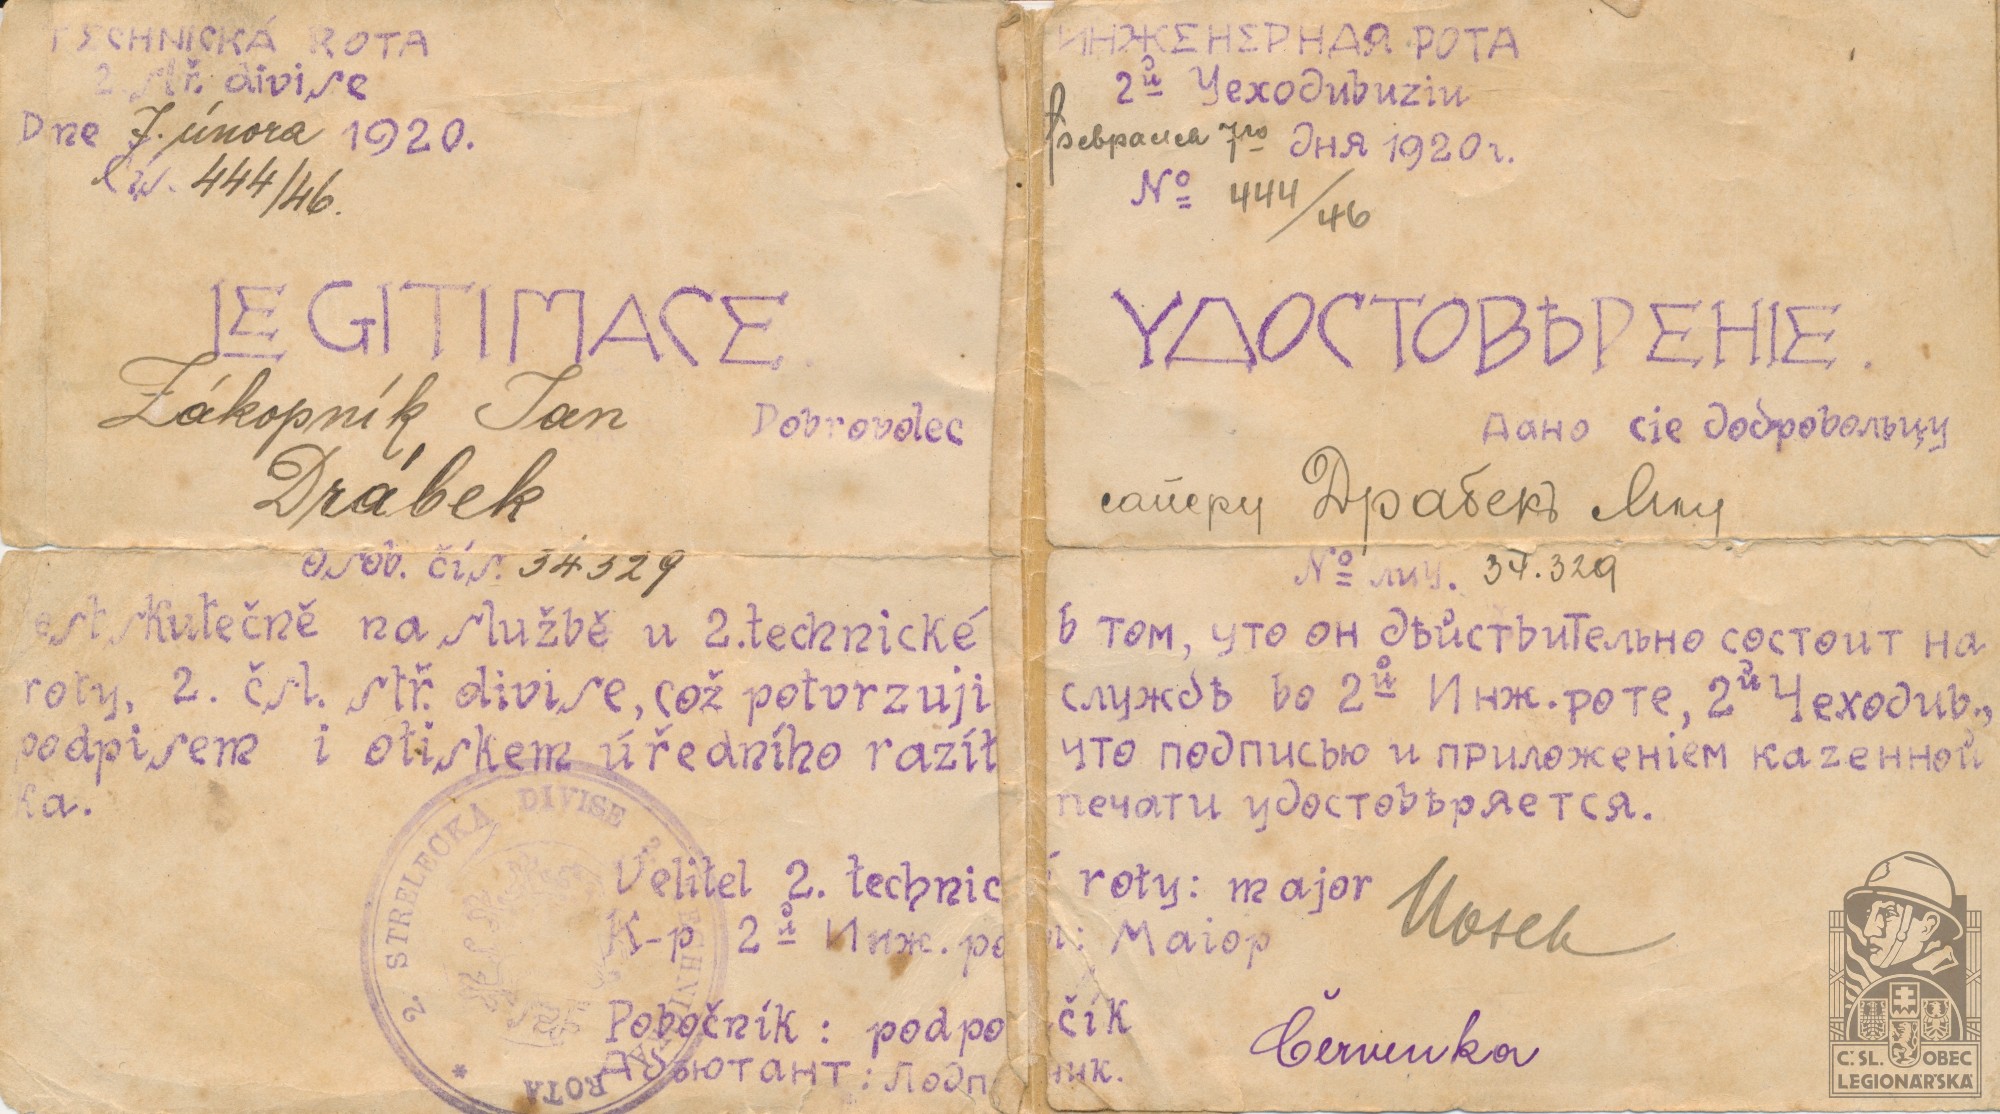 TECHNICKÁ ROTA
2. stř. divise
Dne 7. února 1920.
čís. 444/46.
LEGITIMACE.
Zákopník Jan Dobrovolec
Drábek
osob. čís. 34329
jest skutečně na službě u 2. technické
roty, 2. čsl. stř. divise, což potvrzuji
podpisem i otiskem úředního razít
ka.
ИНЖЕНЕРНАЯ РОТА
2й Чеходивизіи
февраля 7го дня 1920 г.
№ 444/46
УДОСТОВѢРЕНІЕ.
Дано сіе добровольцу
саперу Драбекъ Яну
№ лич. 34.329
в том, что он дѣйствительно состоит на
службѣ во 2й Инж. роте, 2й Чеходив.,
что подписью и приложеніем казенной
печати удостовѣряется.
Velitel 2. technické roty: major Mosek
К-р 2й Инж. роты: Маіор
Pobočník: podporučík Červenka
Адъютант: Подп ник.
2. STRELECKA DIVISE * 2. TECHNICKA ROTA *
Č. SL. OBEC
LEGIONÁŘSKÁ